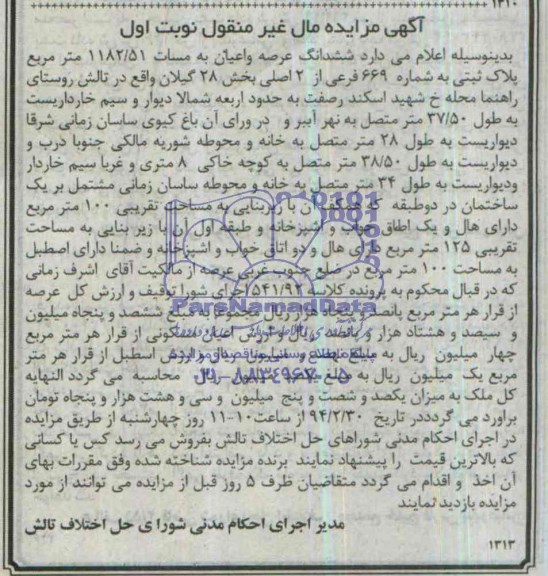 ۱۳۱۰
آگهی مزایده مال غیر منقول نوبت اول
بدینوسیله اعلام می دارد ششدانگ عرصه واعیان به مسات ۱۱۸۲/۵۱ متر مربع
پلاک ثبتی به شماره ۶۶۹ فرعی از ۲ اصلی بخش ۲۸ گیلان واقع در تالش روستای
راهنما محله خ شهید اسکند رصفت به حدود اربعه شمالا دیوار و سیم خارداریست
به طول ۳۷/۵۰ متر متصل به نهر آببر و در ورای آن باغ کیوی ساسان زمانی شرقا
دیواریست به طول ۲۸ متر متصل به خانه و محوطه شوریه مالکی جنوبا درب و
دیواریست به طول ۳۸/۵۰ متر متصل به کوچه خاکی ۸ متری و غربا سیم خاردار
ودیواریست به طول ۳۴ متر متصل به خانه و محوطه ساسان زمانی مشتمل بر یک
ساختمان در دوطبقه که همکف آن با زیربنایی به مساحت تقریبی ۱۰۰ متر مربع
دارای هال و یک اطاق خواب و اشپزخانه و طبقه اول آن با زیر بنایی به مساحت
تقریبی ۱۲۵ متر مربع دارای هال و دو اتاق خواب و اشپزخانه و ضمنا دارای اصطبل
به مساحت ۱۰۰ متر مربع در ضلع جنوب غربی عرصه از مالکیت آقای اشرف زمانی
که در قبال محکوم به پرونده کلاسه ۵۴۱/۹۲ اجرای شورا توقیف و ارزش کل عرصه
از قرار هر متر مربع پانصد و پنجاه هزار ریال مجموعا به مبلغ ششصد و پنجاه میلیون
و سیصد و هشتاد هزار و پانصد ریال و ارزش اعیان مسکونی از قرار هر متر مربع
چهار میلیون ریال به مبلغ ریال و ارزش اسطبل از قرار هر متر
مربع یک میلیون ریال به مبلغ یکصد میلیون ریال محاسبه می گردد النهایه
کل ملک به میزان یکصد و شصت و پنج میلیون و سی و هشت هزار و پنجاه تومان
براورد می گردددر تاریخ ۹۴/۲/۳۰ از ساعت۱۰-۱۱ روز چهارشنبه از طریق مزایده
در اجرای احکام مدنی شوراهای حل اختلاف تالش بفروش می رسد کس یا کسانی
که بالاترین قیمت را پیشنهاد نمایند برنده مزایده شناخته شده وفق مقررات بهای
آن اخذ و اقدام می گردد متقاضیان ظرف ۵ روز قبل از مزایده می توانند از مورد
مزایده بازدید نمایند
مدیر اجرای احکام مدنی شورا ی حل اختلاف تالش
۱۳۱۳
ParsNamadData
۰۲۱-۸۸۳۴۹۶۷۰-۵